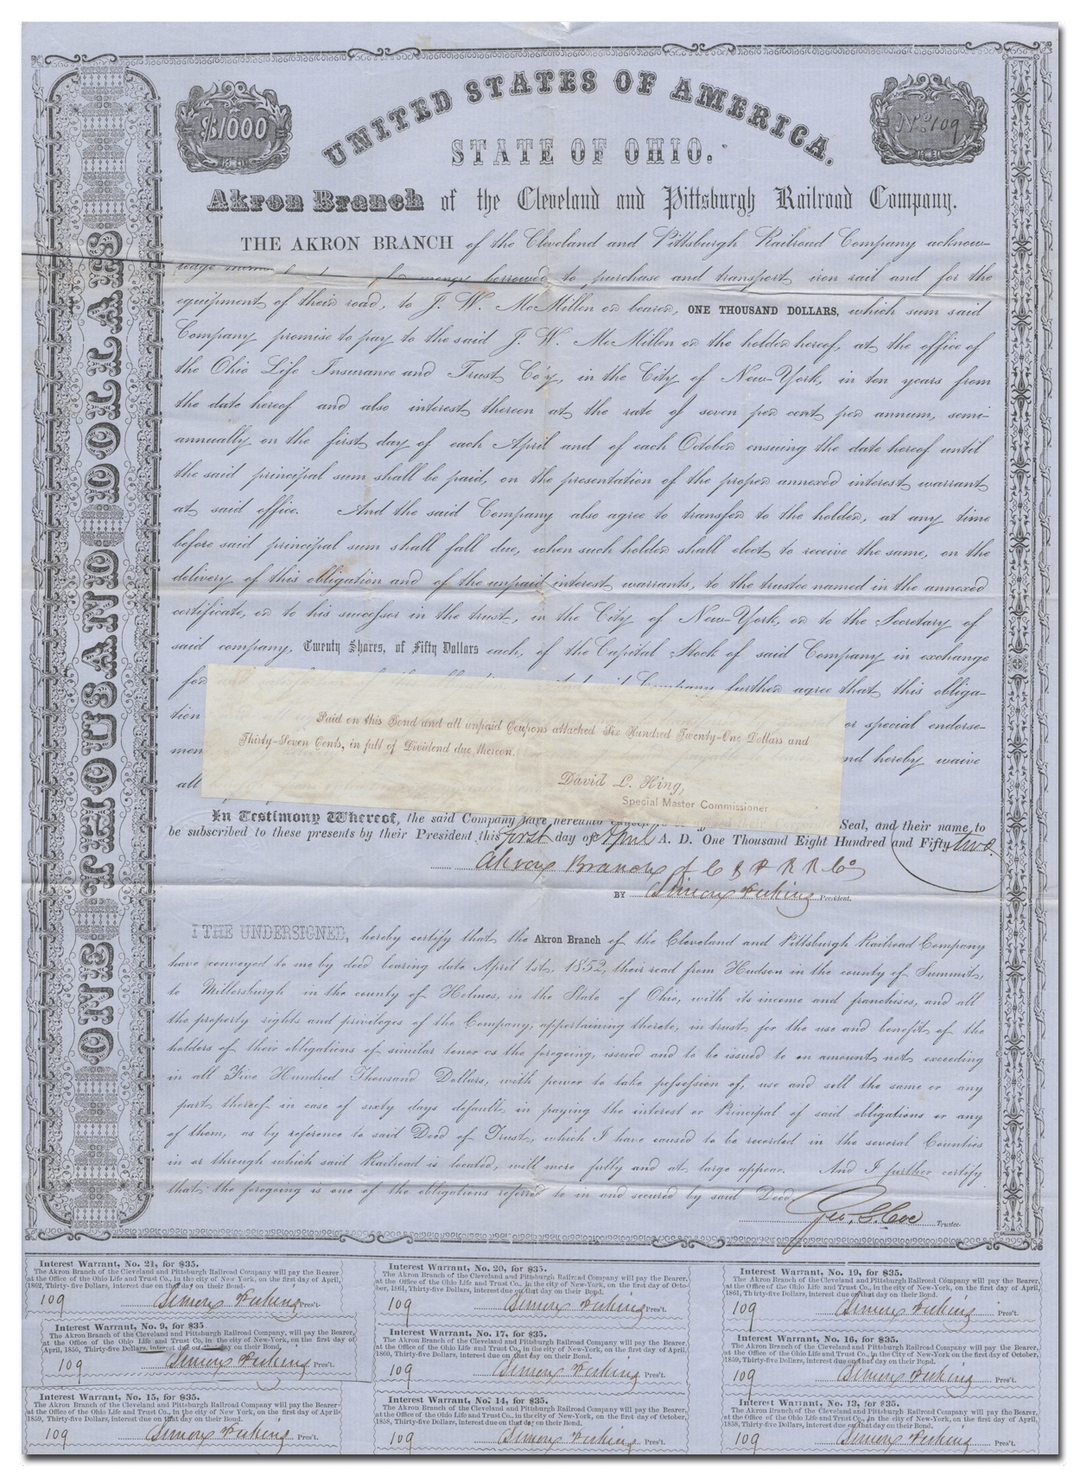 UNITED STATES OF AMERICA.
STATE OF OHIO.
$1000
No 109
Akron Branch of the Cleveland and Pittsburgh Railroad Company.
ONE THOUSAND DOLLARS
THE AKRON BRANCH of the Cleveland and Pittsburgh Railroad Company acknow-
money borrowed to purchase and transport iron rail and for the
equipment of their road, to J. W. McMillen or bearer, ONE THOUSAND DOLLARS, which sum said
Company promise to pay to the said J. W. McMillen or the holder hereof, at the office of
the Ohio Life Insurance and Trust Coy, in the City of New-York, in ten years from
the date hereof and also interest thereon at the rate of seven per cent per annum, semi-
annually on the first day of each April and of each October ensuing the date hereof until
the said principal sum shall be paid, on the presentation of the proper annexed interest warrant
at said office. And the said Company also agree to transfer to the holder, at any time
before said principal sum shall fall due, when such holder shall elect to receive the same, on the
delivery of this obligation and of the unpaid interest warrants, to the trustee named in the annexed
certificate, or to his successor in the trust, in the City of New-York, or to the Secretary of
said company, Twenty Shares, of Fifty Dollars each, of the Capital Stock of said Company in exchange
for said Company further agree that this obliga-
tion or special endorse-
men and hereby waive
all
Paid on this Bond and all unpaid Coupons attached Six Hundred Twenty-One Dollars and
Thirty-Seven Cents, in full of Dividend due thereon.
David L. King,
Special Master Commissioner
In Testimony Whereof, the said Company have hereunto Seal, and their name to
be subscribed to these presents by their President, this first day of April A. D. One Thousand Eight Hundred and Fifty two.
Akron Branch of C & P R R Co
BY Simon Perkins President.
I THE UNDERSIGNED, hereby certify that the Akron Branch of the Cleveland and Pittsburgh Railroad Company
have conveyed to me by deed bearing date April 1st, 1852, their road from Hudson in the county of Summit,
to Millersburgh in the county of Holmes, in the State of Ohio, with its income and franchises, and all
the property rights and privileges of the Company, appertaining thereto, in trust for the use and benefit of the
holders of their obligations of similar tenor as the foregoing, issued and to be issued to an amount not exceeding
in all Five Hundred Thousand Dollars, with power to take possession of, use and sell the same or any
part thereof in case of sixty days default in paying the interest or Principal of said obligations or any
of them, as by reference to said Deed of Trust, which I have caused to be recorded in the several Counties
in or through which said Railroad is located, will more fully and at large appear. And I further certify
that the foregoing is one of the obligations referred to in and secured by said Deed
Geo. S. Coe Trustee.
Interest Warrant, No. 21, for $35.
The Akron Branch of the Cleveland and Pittsburgh Railroad Company will pay the Bearer,
at the Office of the Ohio Life and Trust Co., in the city of New York, on the first day of April,
1862, Thirty-five Dollars, interest due on that day on their Bond.
109 Simon Perkins Pres't.
Interest Warrant, No. 20, for $35.
The Akron Branch of the Cleveland and Pittsburgh Railroad Company will pay the Bearer,
at the Office of the Ohio Life and Trust Co., in the city of New York, on the first day of Octo-
ber, 1861, Thirty-five Dollars, interest due on that day on their Bond.
109 Simon Perkins Pres't.
Interest Warrant, No. 19, for $35.
The Akron Branch of the Cleveland and Pittsburgh Railroad Company will pay the Bearer,
at the Office of the Ohio Life and Trust Co., in the city of New York, on the first day of April,
1861, Thirty-five Dollars, interest due on that day on their Bond.
109 Simon Perkins Pres't.
Interest Warrant, No. 9, for $35
The Akron Branch of the Cleveland and Pittsburgh Railroad Company, will pay the Bearer,
at the Office of the Ohio Life and Trust Co., in the city of New-York, on the first day of
April, 1856, Thirty-five Dollars, interest due on that day on their Bond.
109 Simon Perkins Pres't.
Interest Warrant, No. 17, for $35.
The Akron Branch of the Cleveland and Pittsburgh Railroad Company will pay the Bearer,
at the Office of the Ohio Life and Trust Co., in the city of New-York, on the first day of April,
1860, Thirty-five Dollars, interest due on that day on their Bond.
109 Simon Perkins Pres't.
Interest Warrant, No. 16, for $35.
The Akron Branch of the Cleveland and Pittsburgh Railroad Company will pay the Bearer,
at the Office of the Ohio Life and Trust Co., in the City of New-York on the first day of October,
1859, Thirty-five Dollars, interest due on that day on their Bond.
109 Simon Perkins Pres't.
Interest Warrant, No. 15, for $35.
The Akron Branch of the Cleveland and Pittsburgh Railroad Company will pay the Bearer,
at the Office of the Ohio Life and Trust Co., in the city of New-York, on the first day of April
1859, Thirty-five Dollars, interest due on that day on their Bond.
109 Simon Perkins Pres't.
Interest Warrant, No. 14, for $35.
The Akron Branch of the Cleveland and Pittsburgh Railroad Company will pay the Bearer,
at the Office of the Ohio Life and Trust Co., in the city of New-York, on the first day of October,
1858, Thirty-five Dollars, interest due on that day on their Bond.
109 Simon Perkins Pres't.
Interest Warrant, No. 13, for $35.
The Akron Branch of the Cleveland and Pittsburgh Railroad Company will pay the Bearer,
at the Office of the Ohio Life and Trust Co., in the city of New-York, on the first day of April,
1858, Thirty-five Dollars, interest due on that day on their Bond.
109 Simon Perkins Pres't.